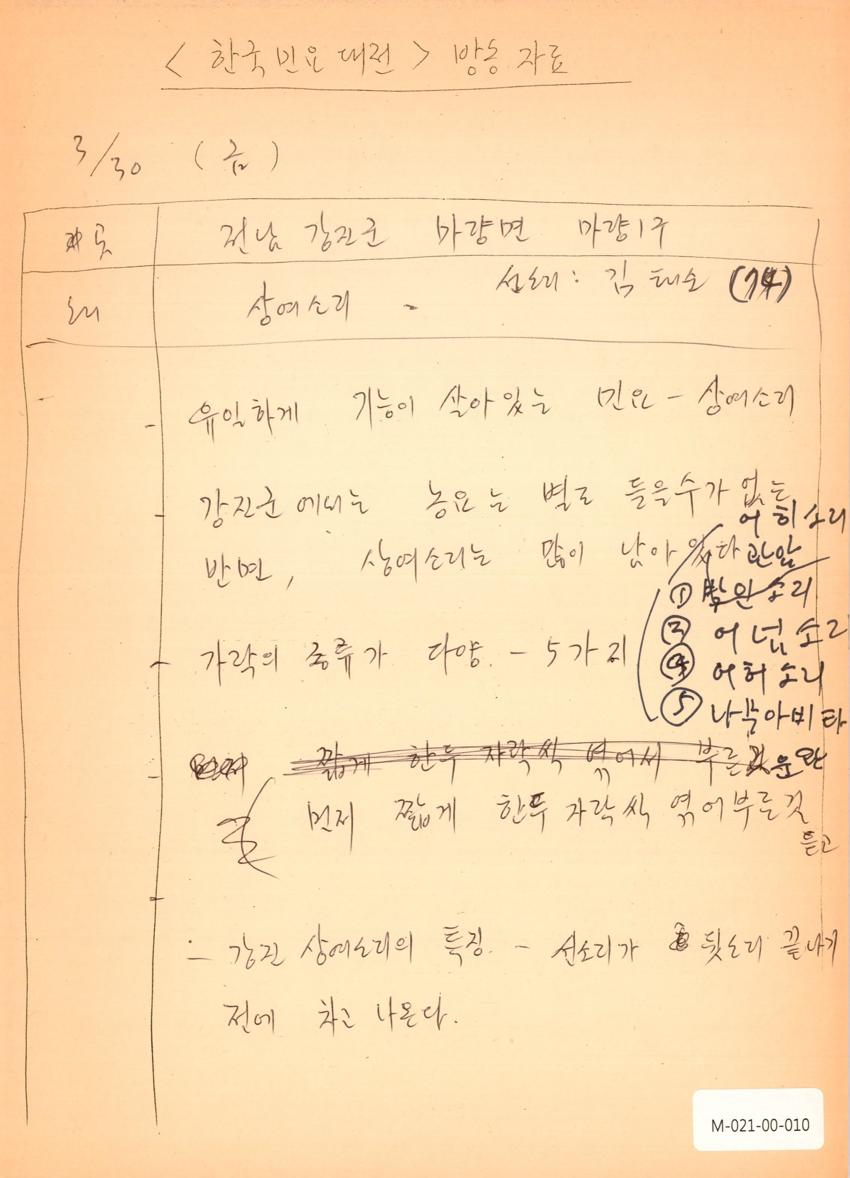 < 한국민요대전 > 방송자료
3/30 (금)
곳 전남 강진군 마량면 마량1구
소리 상여소리 - 선소리: 김태순 (74)
유일하게 기능이 살아있는 민요 - 상여소리
강진군에서는 농요는 별로 들을수가 없는
반면, 상여소리는 많이 남아있다
어히소리
관암
① 소리
② 어넘소리
④ 어허소리
⑤ 나무아비타
가락의 종류가 다양. - 5가지
짧게 한두 자락씩 엮어서 부른
먼저 짧게 한두 자락씩 엮어부른것
듣고
- 강진 상여소리의 특징. - 선소리가 뒷소리 끝나기
전에 차고 나온다.
M-021-00-010